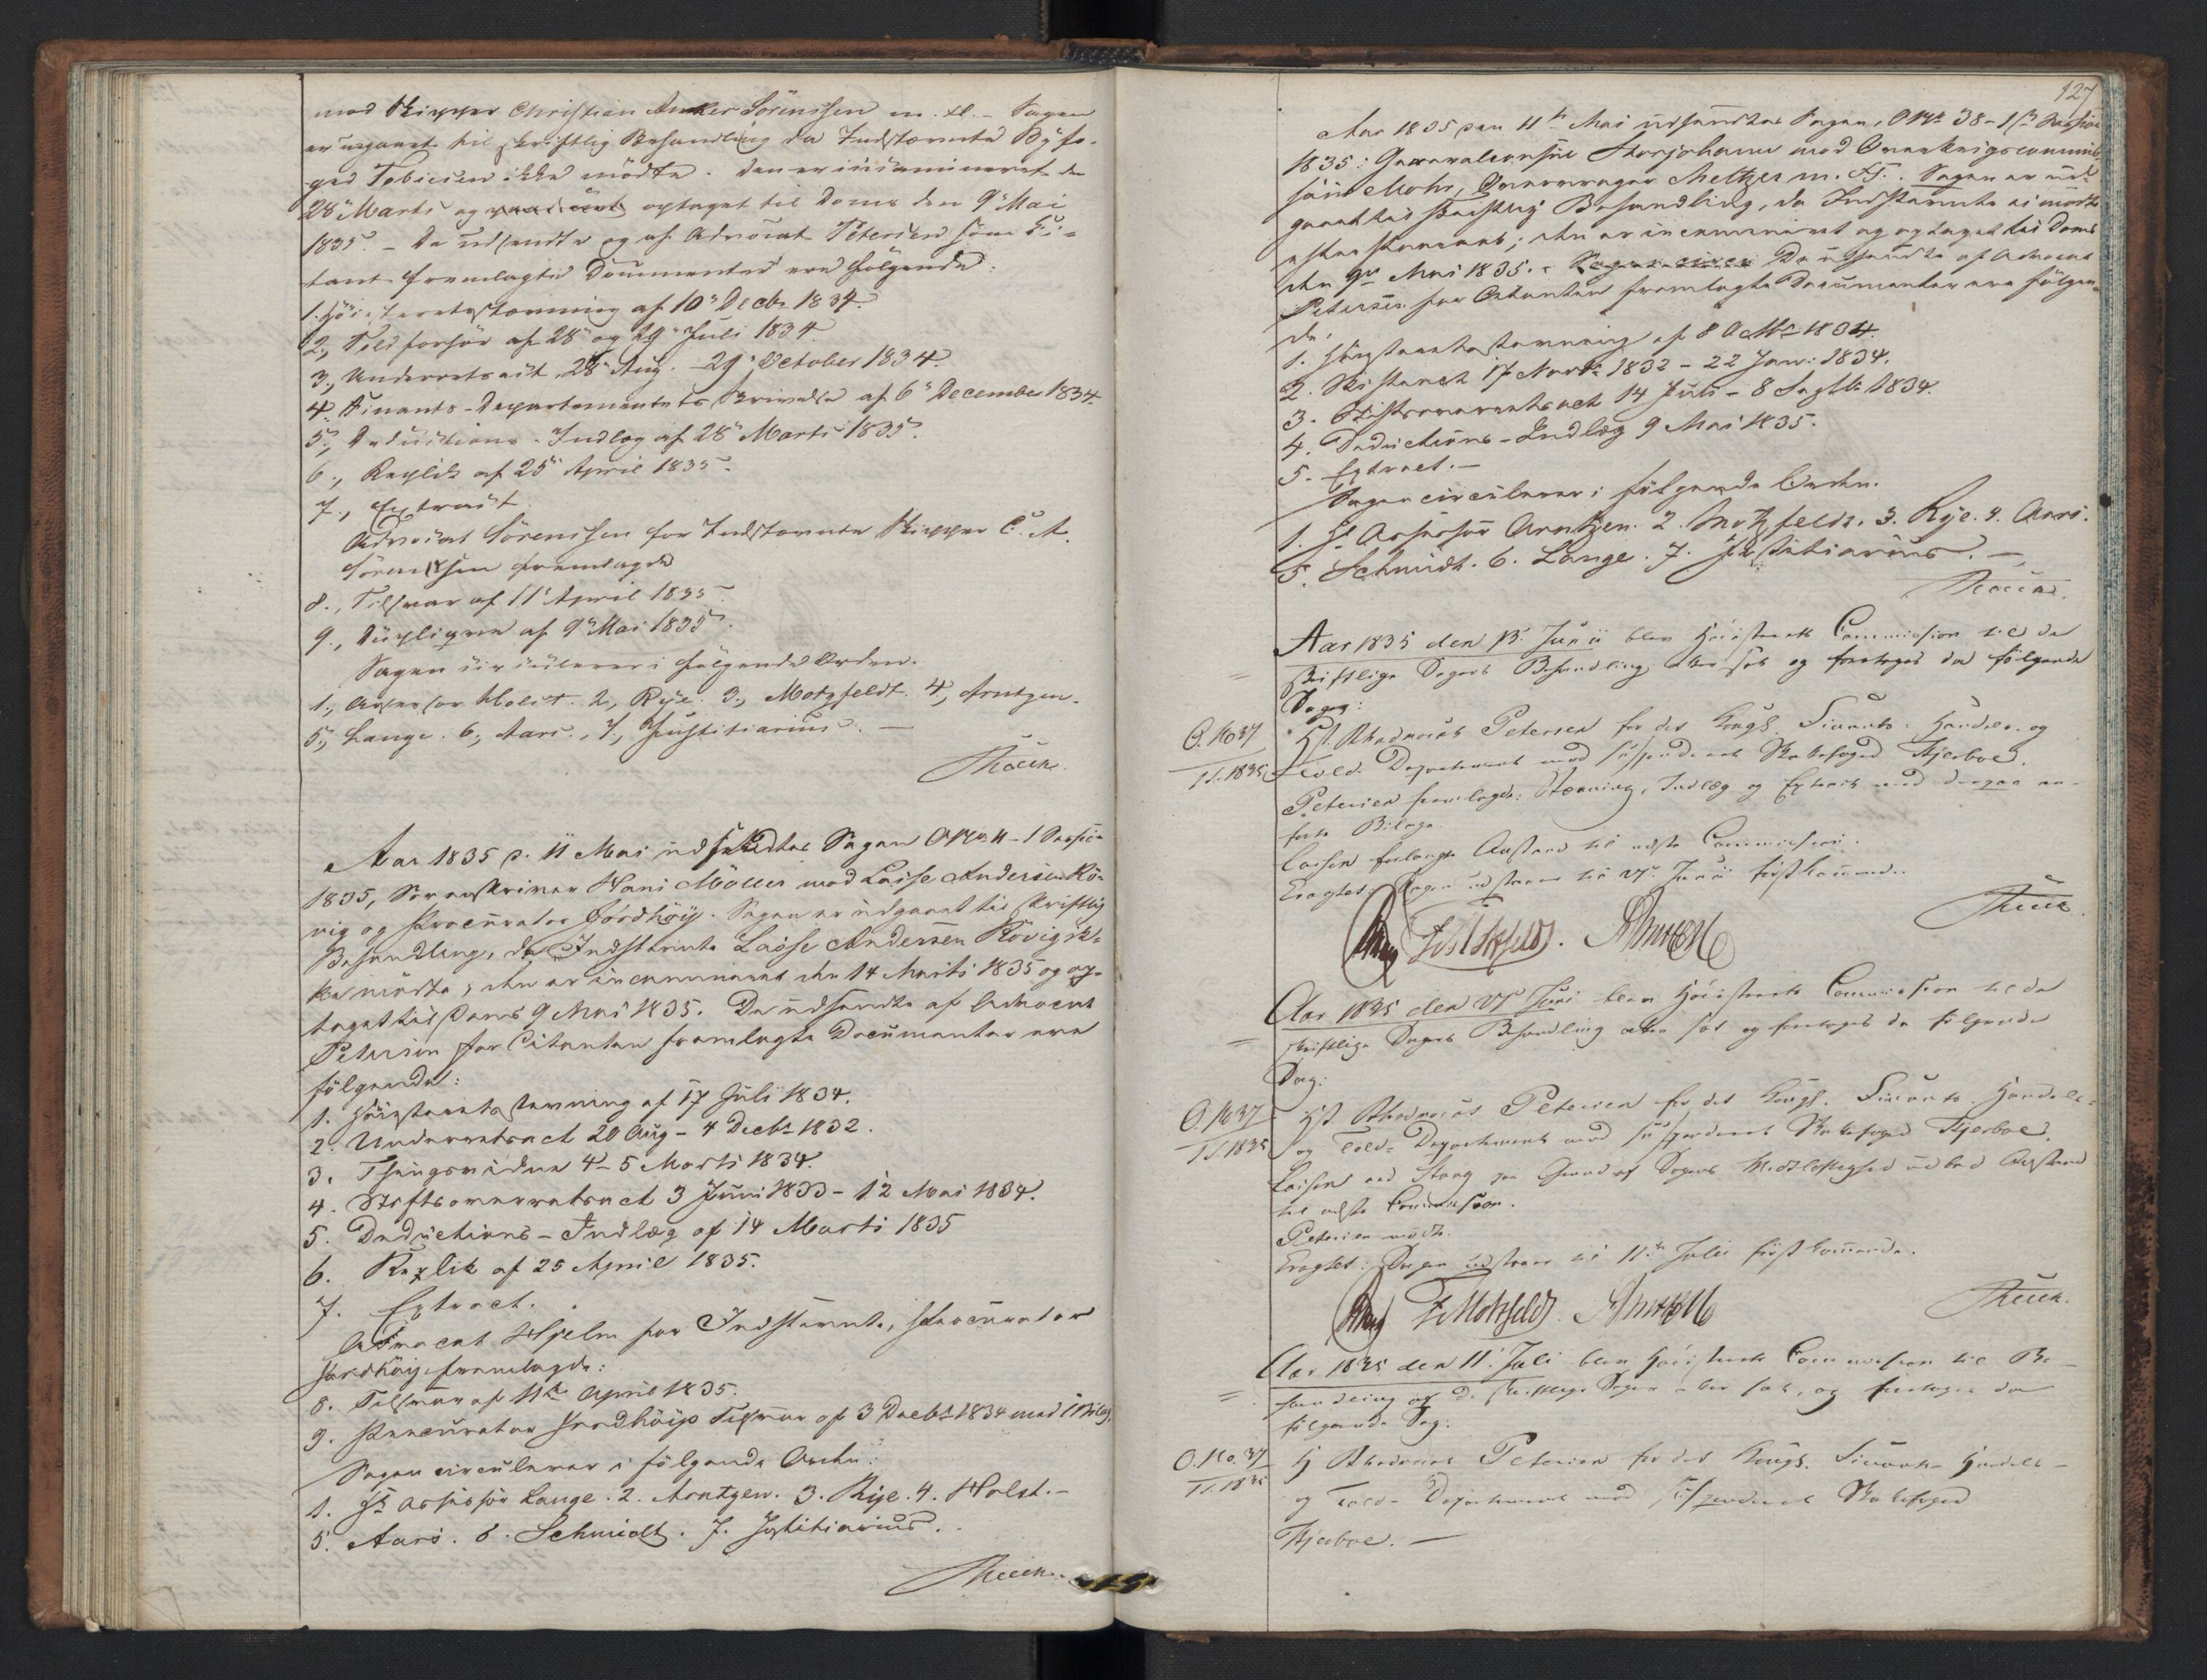 mod Skipper Christian Anker Sörenssen m. Fl. - Sagen
er udgaaet til skriftlig Behandling da Indstævnte Byfo-
ged Tobiesen ikke mödte. Den er incamineret den
28de Marts og optaget til Doms den 9de Mai
1835. - De udsendte og af Advocat Petersen som Ci-
tant fremlagte Documenter ere fölgende:
1. Höiesteretsstævning af 10de Decbr 1834.
2., Toldforhör af 28de og 29de Juli 1834.
3., Underretsact 28de Aug. - 29de October 1834.
4. Finants-Departementets Skrivelse af 6de December 1834.
5., Deductions-Indlæg af 28de Marts 1835.
6., Replik af 25de April 1835.
7., Extract.
Advocat Sörenssen for Indstævnte Skipper C. A.
Sörenssen fremlagde
8., Tilsvar af 11te April 1835.
9., Duplique af 9de Mai 1835.
Sagen circulerer i fölgende Orden.
1., Assessor Holst. 2., Rye. 3., Motzfeldt. 4., Arntzen.
5., Lange. 6., Aars., 7., Justitiarius. -
Aar 1835 d. 11 Mai udsendtes Sagen O No 11 - 1 Session
1835, Sorenskriver Hans Möller mod Lasse Andersen Rö-
vig og Procurator Jordhöy. Sagen er udgaaet til skriftlig
Behandling, da Indstævnte Lasse Andersen Rövig ik-
ke mödte; den er incamineret den 14 Marts 1835 og op-
taget til Doms 9 Mai 1835. De udsendte af Advocat
Petersen for Citanten fremlagte Documenter ere
fölgende:
1. Höiesteretsstævning af 17 Juli 1834.
2. Underretsact 20 Aug - 4 Decbr 1832.
3. Thingsvidne 4 - 5 Marts 1834.
4. Stiftsoverretsact 3 Juni 1833 - 12 Mai 1834.
5. Deductions-Indlæg af 14 Marts 1835
6. Replik af 25 April 1835.
7. Extract.
Advocat Hjelm for Indstævnte, Procurator
Jordhöy fremlagde:
8. Tilsvar af 11te April 1835.
9. Procurator Jordhöys Tilsvar af 3 Decbr 1834 med 1 Bilag.
Sagen circulerer i fölgende Orden:
1. Hr Assessor Lange. 2. Arntzen. 3. Rye. 4. Holst. -
5. Aars. 6. Schmidt. 7. Justitiarius.
127
Aar 1835 den 11te Mai udsendtes Sagen, O No 38 - 1ste Session
1835: Generalconsul Storjohann mod Overkrigscommis-
sair Mohr, Meltzer m. Fl. Sagen er ud-
gaaet til skriftlig Behandling, da Indstævnte ei mödte
efter ; den er incamineret og optaget til Doms
den 9de Mai 1835. - De udsendte af Advocat
Petersen for Citanten fremlagte Documenter ere fölgen-
de:
1. Höiesteretsstævning af 8 Octbr 1834.
2. 17 Novbr 1832 - 22 Jan: 1834.
3. Stiftsoverretsact 14 Juli - 8 Septbr 1834.
4. Deductions-Indlæg 9 Mai 1835.
5. Extract. -
Sagen circulerer i fölgende Orden.
1. Hr Assessor Arntzen. 2. Motzfeldt. 3. Rye. 4. Aars.
5. Schmidt. 6. Lange. 7. Justitiarius. -
Aar 1835 den 13. Junii blev Höiesterets Commission til de
skriftlige Sagers Behandling atter sat og foretoges da fölgende
Sag:
O. No 37
1 S. 1835
Hr. Advocat Petersen for det Kongl. Finants- Handels- og
Told- Departement mod suspenderet Skatefoged Kjerboe.
Petersen fremlagde: Stævning, Indlæg og Extract med derpaa an-
förte Bilage.
forlangte Anstand til næste Commission.
Eragtet: Sagen udstaaer til 27de Junii förstkommende.
Motzfeldt. Arntzen
Aar 1835 den 27de Juni blev Höiesterets Commission til de
skriftlige Sagers Behandling atter sat og foretoges da fölgende
Sag:
O. No 37
1 S. 1835
Hr. Advocat Petersen for det Kongl. Finants- Handels-
og Told- Departement mod suspenderet Skatefoged Kjerboe.
ved paa Grund af Sagens Vidtlöftighed udbad Anstand
til næste Commission.
Petersen mödte.
Eragtet: Sagen udstaaer til 11te Julii förstkommende.
Motzfeldt. Arntzen
Aar 1835 den 11te Juli blev Höiesterets Commission til Be-
handling af de skriftlige Sager atter sat, og foretoges da
fölgende Sag:
O. No. 37
1 S. 1835
Hr Advocat Petersen for det Kongl. Finants- Handels-
og Told- Departement mod suspenderet Skatefoged
Kjerboe. -